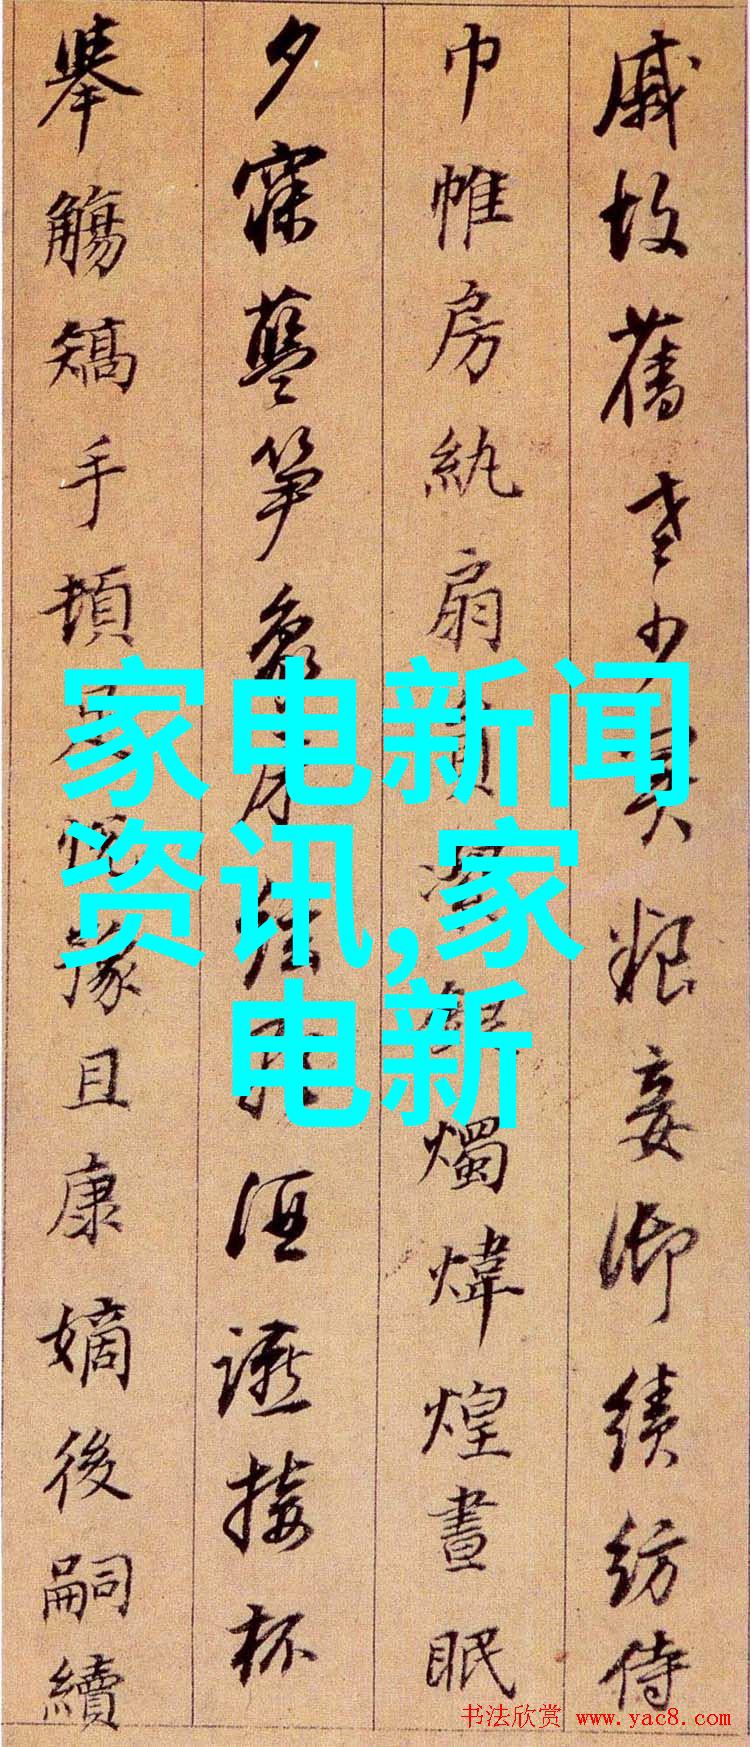 戚故舊老少異粮妾御績紡侍
巾帷房紈扇員潔銀燭煒煌晝眠
夕寐藍笋象床絃歌酒讌接杯
舉觴矯手頓足悅豫且康嫡後嗣續
家电新闻
资讯,家
电新
书法欣赏 www.yac8.com